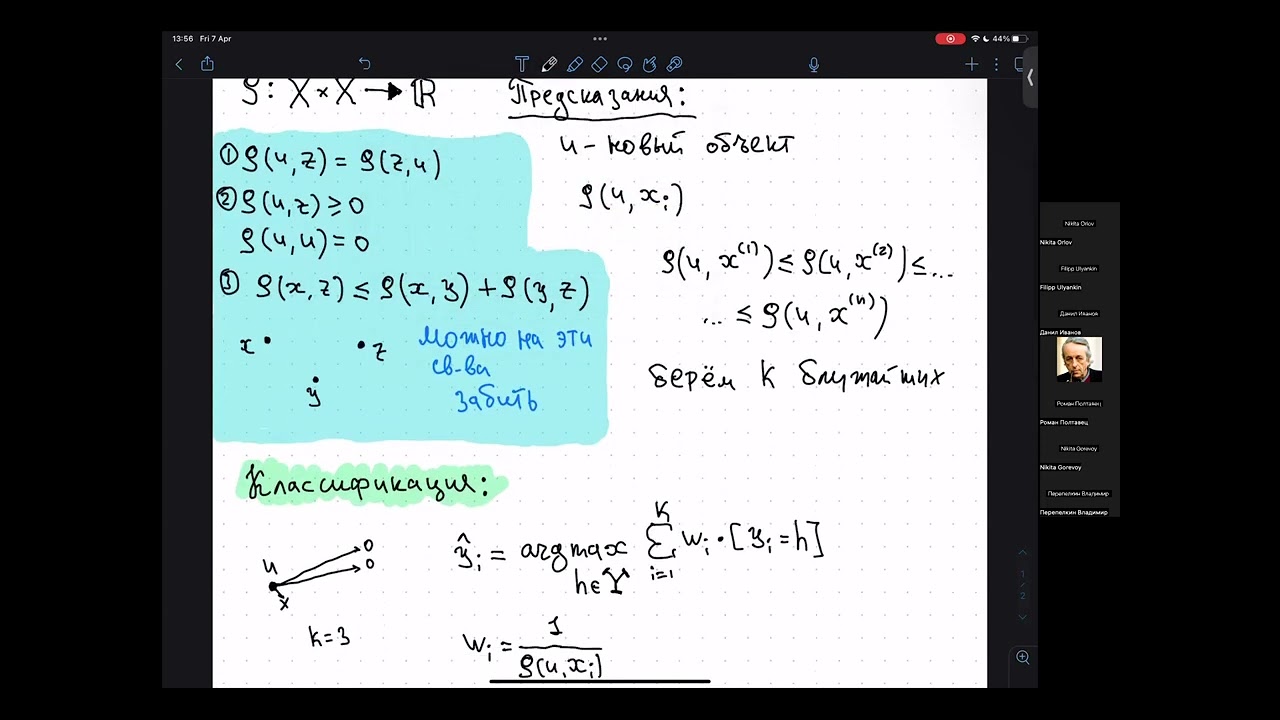 13:56 Fri 7 Apr
44%
ρ: X × X → ℝ
① ρ(u,z) = ρ(z,u)
② ρ(u,z) ≥ 0
ρ(u,u) = 0
③ ρ(x,z) ≤ ρ(x,y) + ρ(y,z)
x
z
y
можно на эти
св-ва
забить
Предсказания:
u - новый объект
ρ(u,xᵢ)
ρ(u,x⁽¹⁾) ≤ ρ(u,x⁽²⁾) ≤ ...
... ≤ ρ(u,x⁽ⁿ⁾)
берём K ближайших
Классификация:
u
0
0
x
k=3
ŷᵢ = argmax ∑ wᵢ · [yᵢ = h]
K
h∈Y
i=1
wᵢ = 1
ρ(u,xᵢ)
Nikita Orlov
Nikita Orlov
Filipp Ulyankin
Filipp Ulyankin
Данил Иванов
Данил Иванов
Роман Полтавец
Роман Полтавец
Nikita Gorevoy
Nikita Gorevoy
Перепелкин Владимир
Перепелкин Владимир
1
/
2